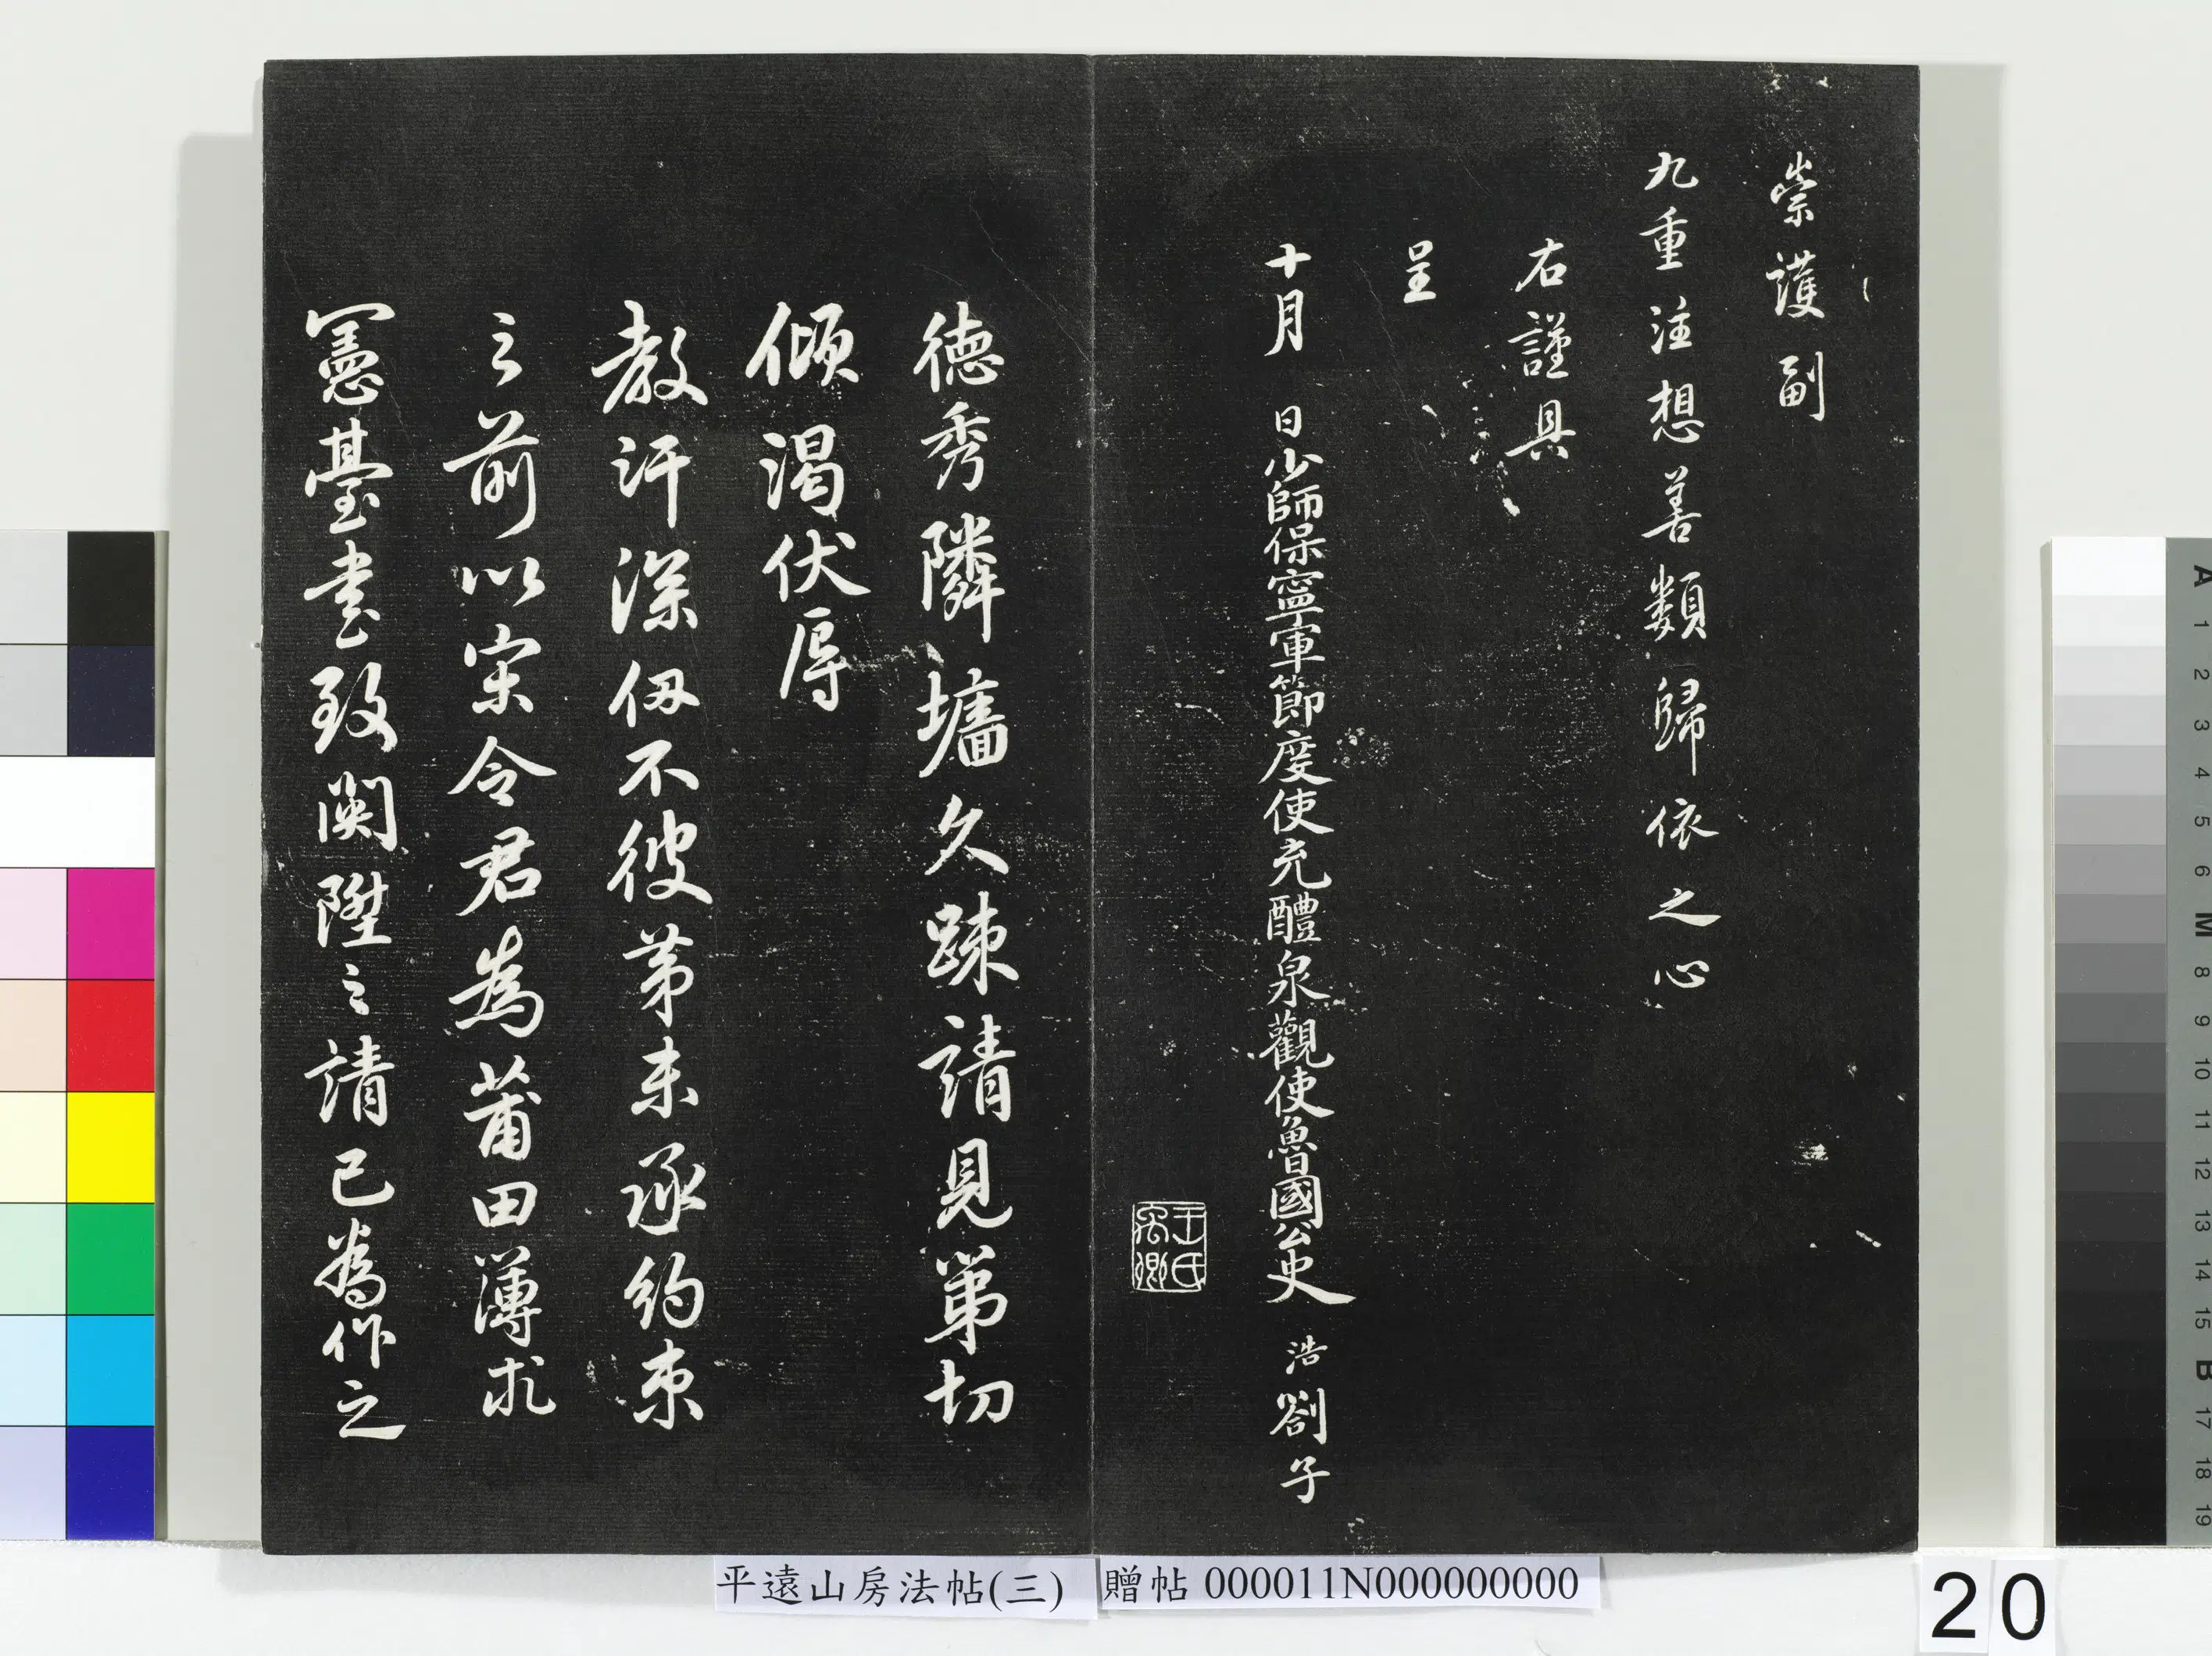 崇護副
九重注想善類歸依之心
右謹具
呈
十月 日少師保寧軍節度使充醴泉觀使魯國公史 浩劄子
王氏禹卿
德秀隣墻久疎請見第切
傾渴伏辱
教汗深仭不彼第未承約束
之前以宋令君為莆田薄求
憲臺書致闕陞之請已為作之
平遠山房法帖(三)
贈帖 000011N000000000
20
A 1 2 3 4 5 6 M 8 9 10 11 12 13 14 15 B 17 18 19